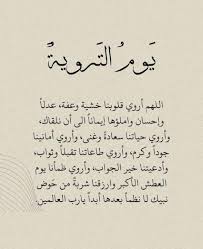 يَومُ التَرويةُ
اللهم أروي قلوبنا خشية وعفة، عدلاً
وإحسان واملؤها إيماناً الى أن نلقاك،
وأروي حياتنا سعادةً وغنى، وأروي أمانينا
جوداً وكرم، وأروي طاعاتنا تقبلاً وثواب،
وأدعيتنا خير الجواب، وأروي ظمأنا يوم
العطش الأكبر وارزقنا شربة من حَوض
نبيك لا نظمأ بعدها أبداً يارب العالمين.